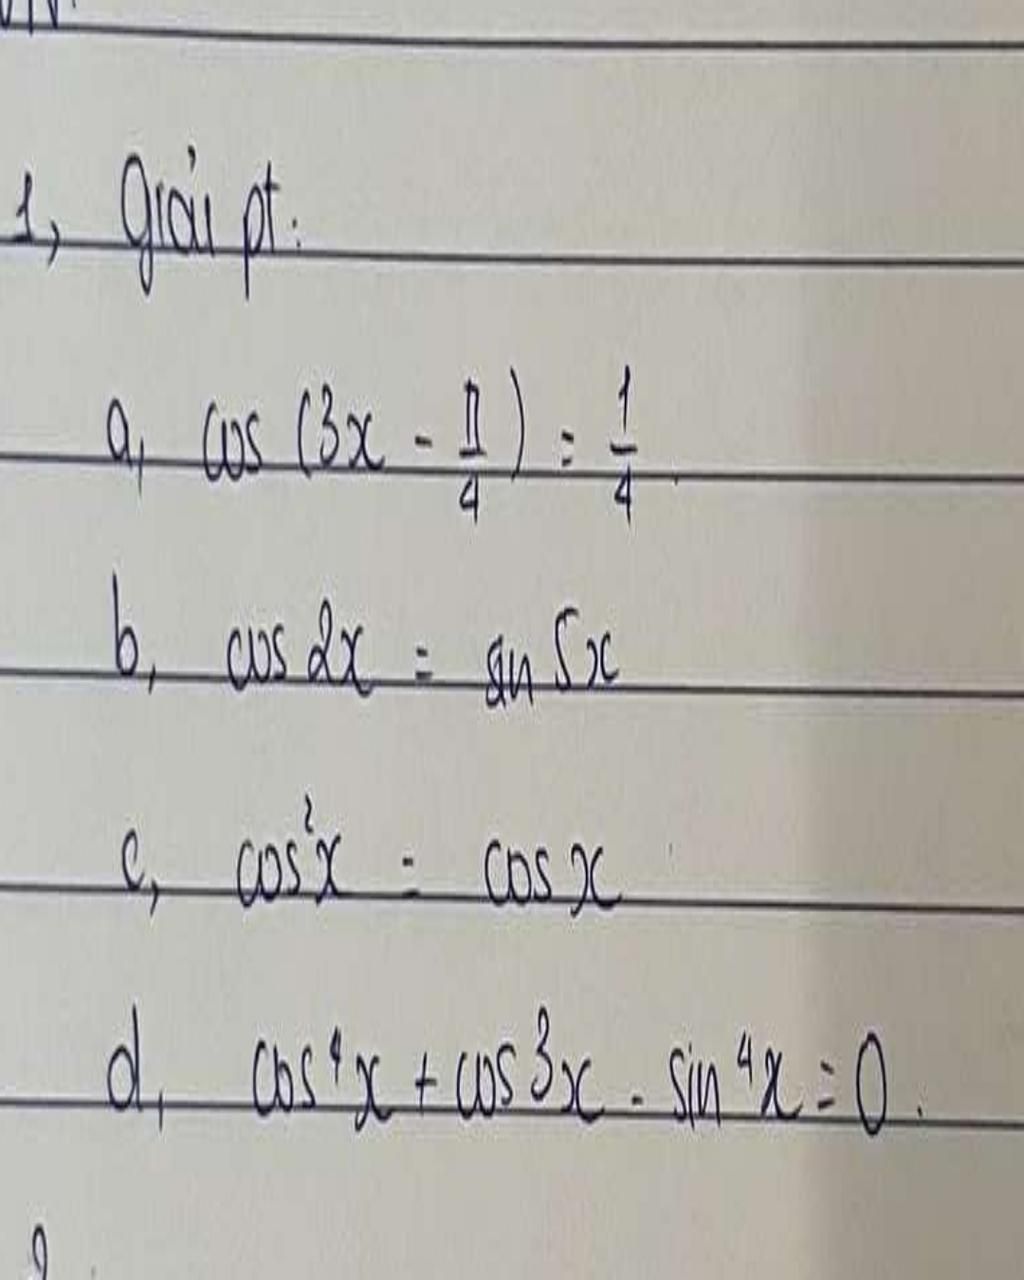 1, Giải pt:
a, cos (3x - π/4) = 1/4.
b, cos 2x = sin 5x
c, cos²x = cos x
d, cos⁴x + cos 3x - sin⁴x = 0.